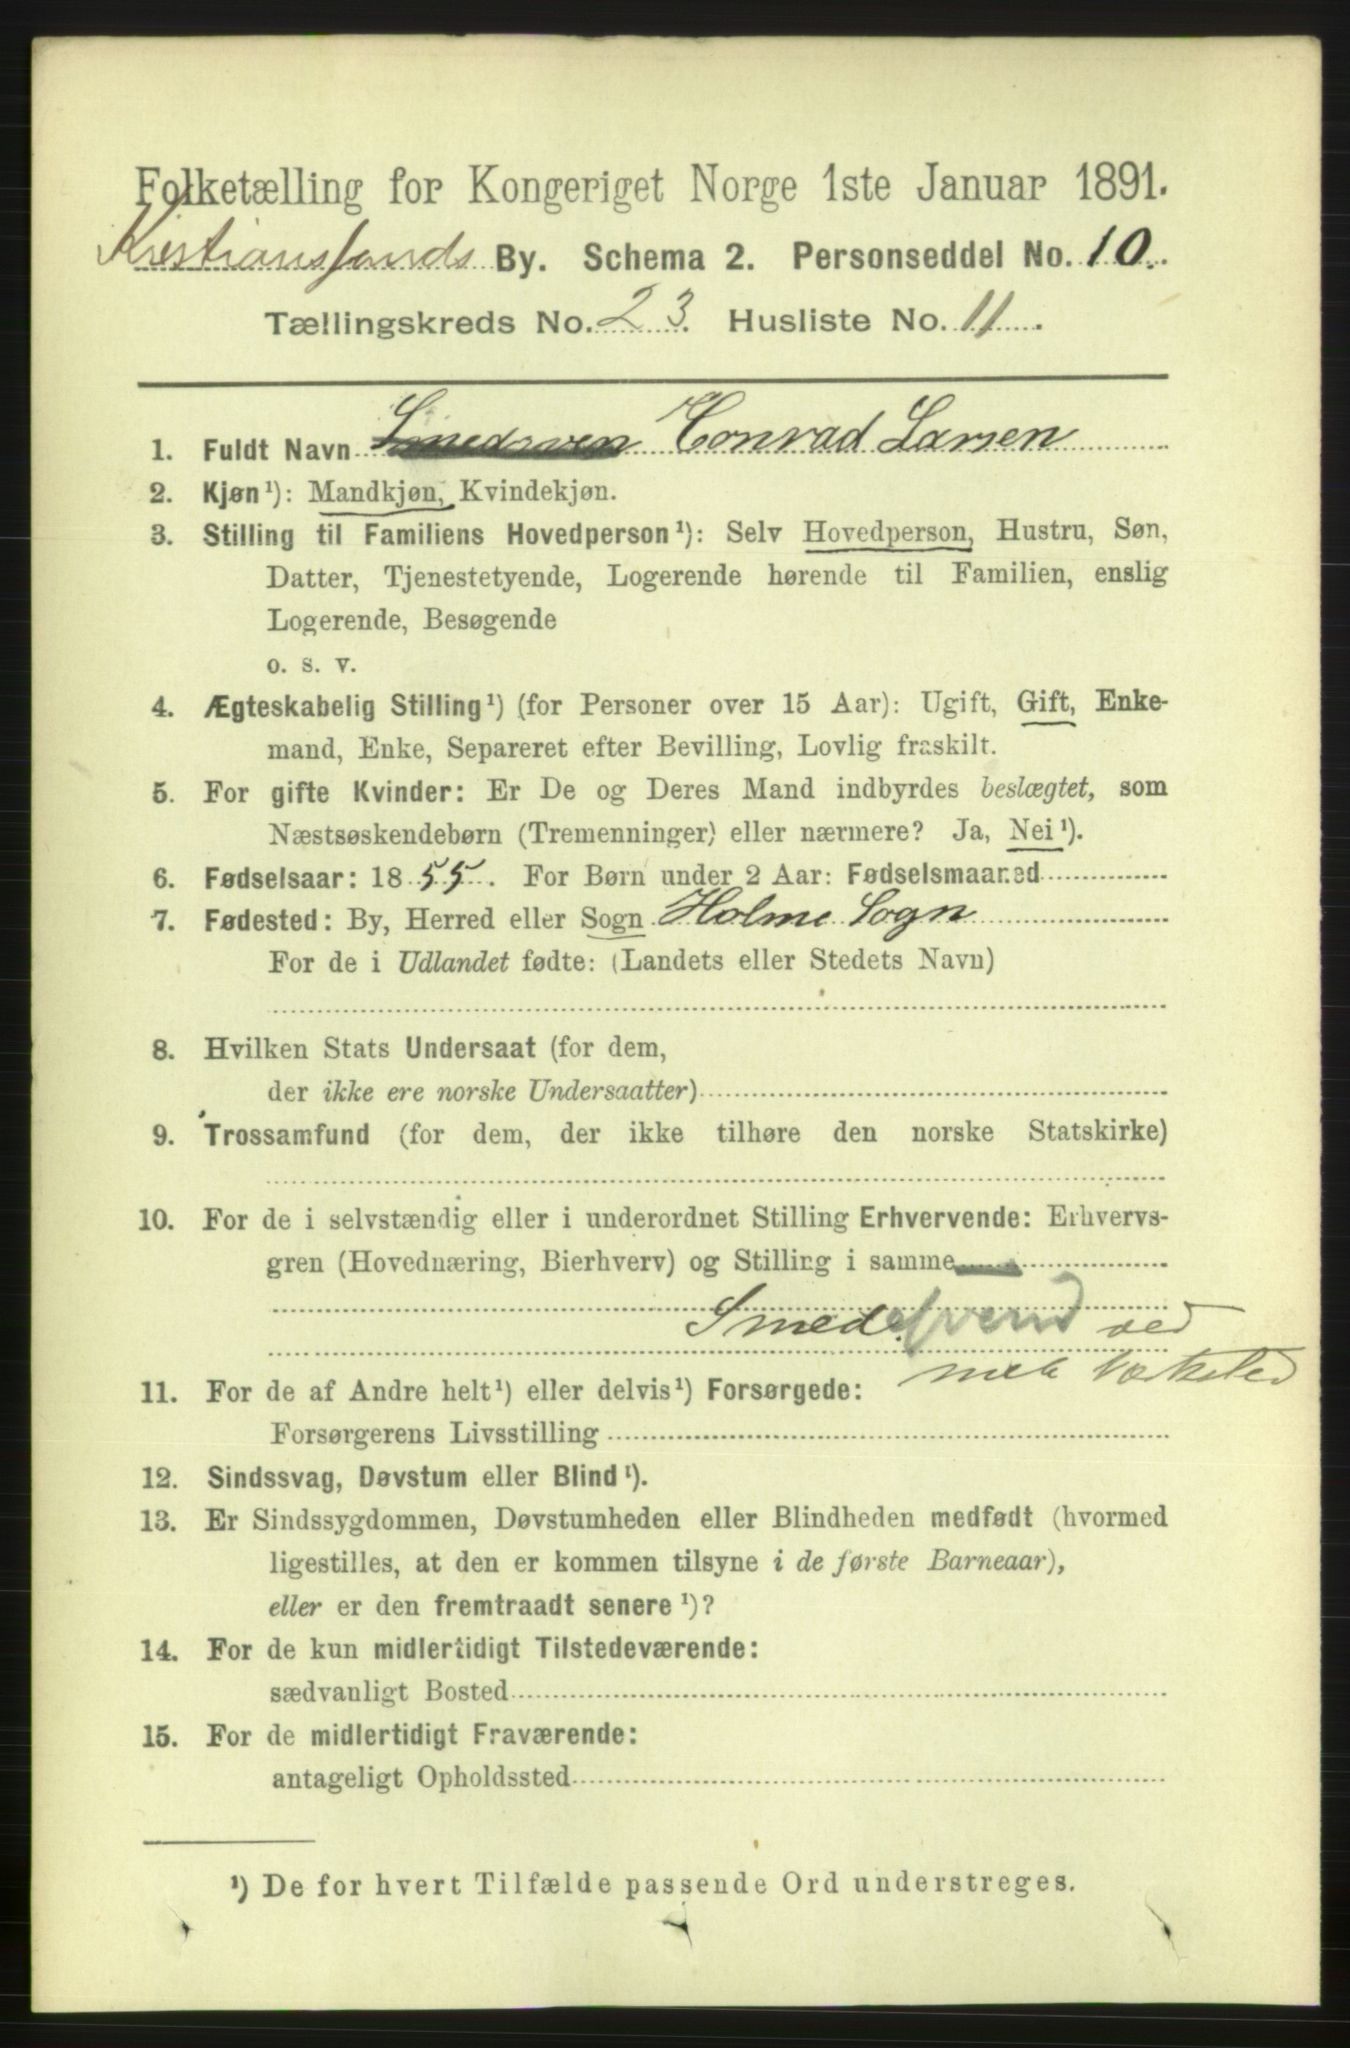 Folketælling for Kongeriget Norge 1ste Januar 1891.
Kristianssands By. Schema 2. Personseddel No. 10.
Tællingskreds No. 23. Husliste No. 11.
1. Fuldt Navn Smedsven Conrad Larsen
2. Kjøn¹): Mandkjøn, Kvindekjøn.
3. Stilling til Familiens Hovedperson¹): Selv Hovedperson, Hustru, Søn,
Datter, Tjenestetyende, Logerende hørende til Familien, enslig
Logerende, Besøgende
o. s. v.
4. Ægteskabelig Stilling¹) (for Personer over 15 Aar): Ugift, Gift, Enke-
mand, Enke, Separeret efter Bevilling, Lovlig fraskilt.
5. For gifte Kvinder: Er De og Deres Mand indbyrdes beslægtet, som
Næstsøskendebørn (Tremenninger) eller nærmere? Ja, Nei¹).
6. Fødselsaar: 1855. For Børn under 2 Aar: Fødselsmaaned
7. Fødested: By, Herred eller Sogn Holme Sogn
For de i Udlandet fødte: (Landets eller Stedets Navn)
8. Hvilken Stats Undersaat (for dem,
der ikke ere norske Undersaatter)
9. Trossamfund (for dem, der ikke tilhøre den norske Statskirke)
10. For de i selvstændig eller i underordnet Stilling Erhvervende: Erhvervs-
gren (Hovednæring, Bierhverv) og Stilling i samme
Smedesvend ved
mek Værksted
11. For de af Andre helt¹) eller delvis¹) Forsørgede:
Forsørgerens Livsstilling
12. Sindssvag, Døvstum eller Blind¹).
13. Er Sindssygdommen, Døvstumheden eller Blindheden medfødt (hvormed
ligestilles, at den er kommen tilsyne i de første Barneaar),
eller er den fremtraadt senere¹)?
14. For de kun midlertidigt Tilstedeværende:
sædvanligt Bosted
15. For de midlertidigt Fraværende:
antageligt Opholdssted
¹) De for hvert Tilfælde passende Ord understreges.